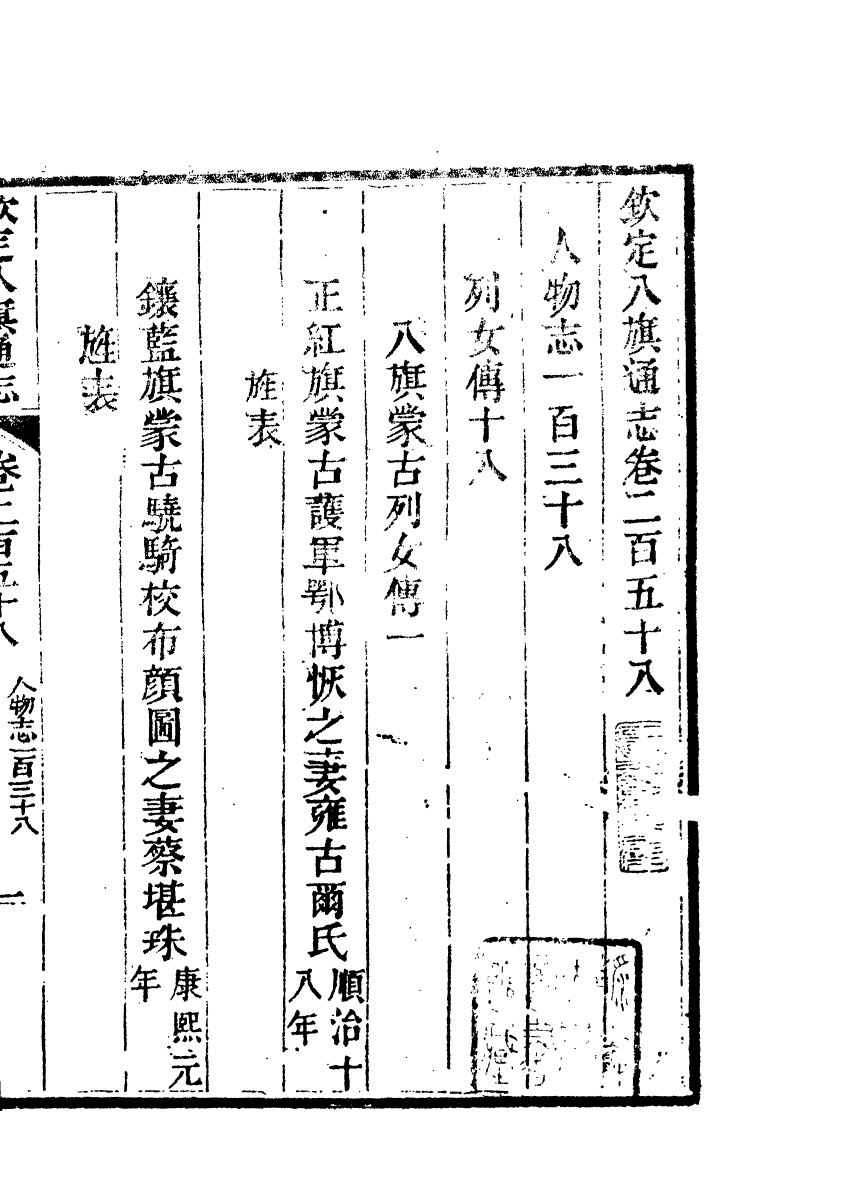 欽定八旗通志卷二百五十八
人物志一百三十八
列女傳十八
八旗蒙古列女傳一
正紅旗蒙古護軍鄂博恢之妻雍古爾氏順治十
八年
旌表
鑲藍旗蒙古驍騎校布顔圖之妻蔡堪珠康熙元
年
旌表
欽定八旗通志
卷二百五十八
人物志一百三十八
一